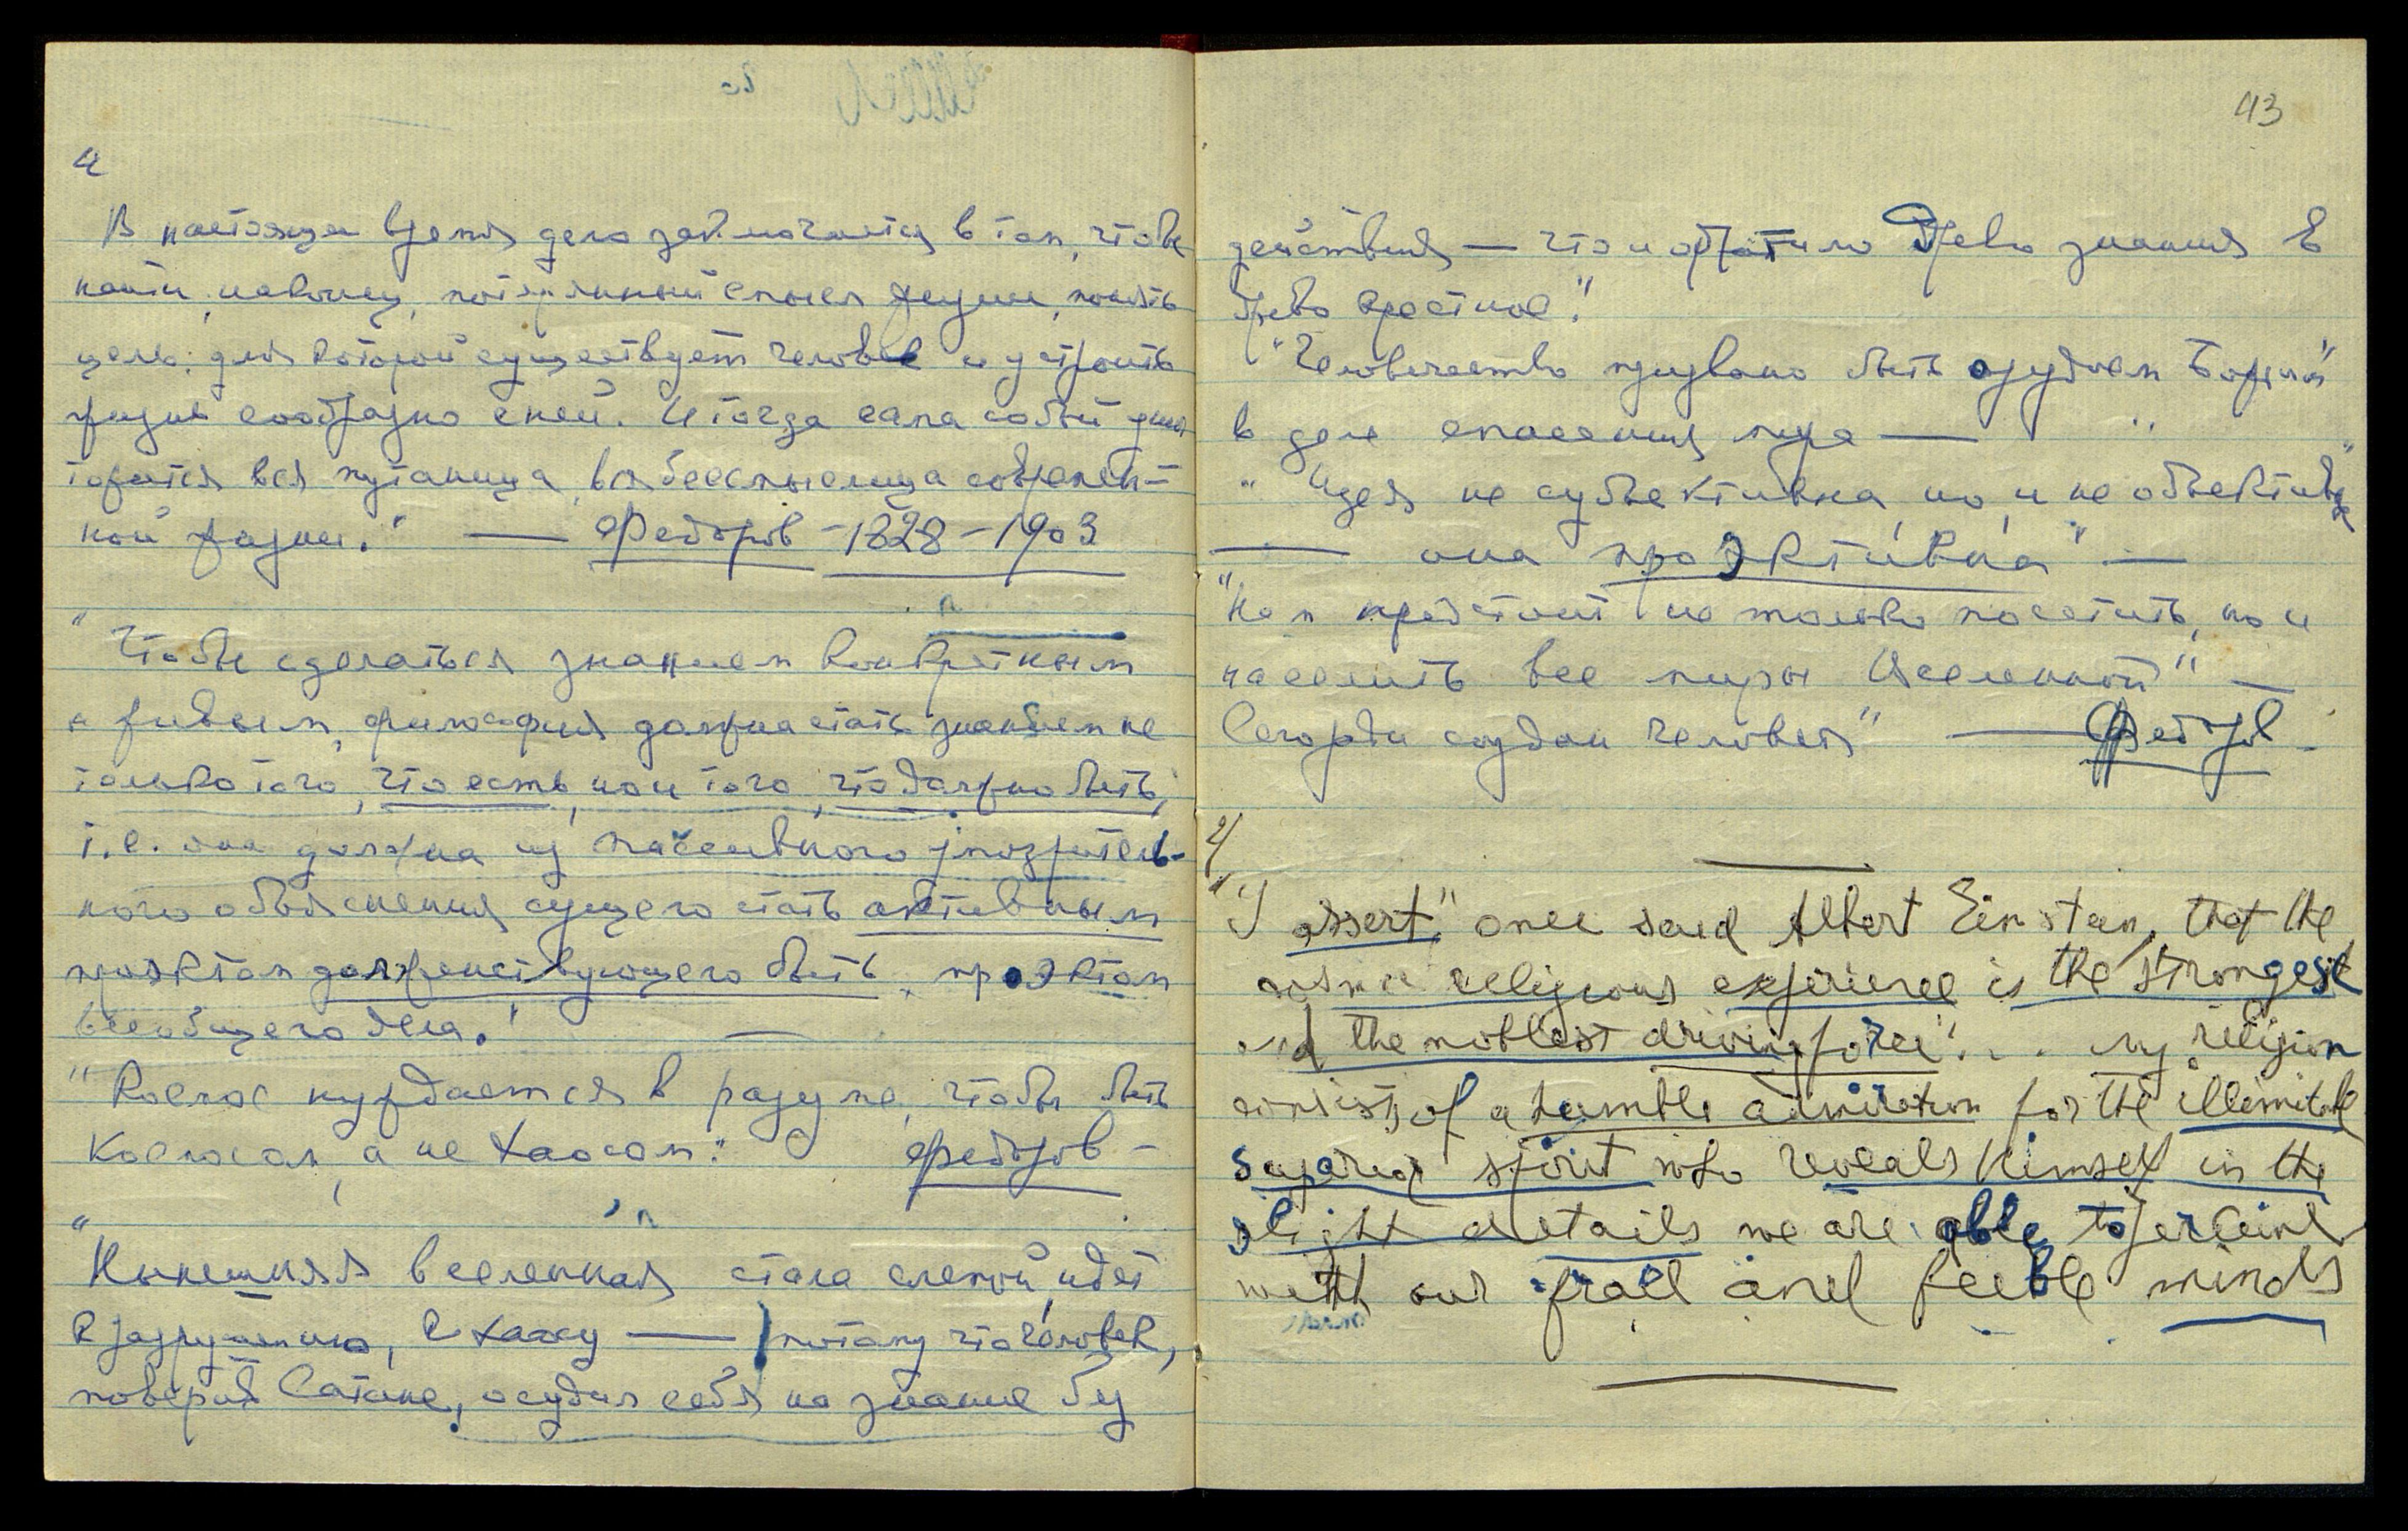 В настоящее время дело заключается в том, чтобы
найти, наконец, потерянный смысл жизни, понять
цель, для которой существует человек и устроить
жизнь сообразно с ней. И тогда сама собой уни
тожится вся путаница, вся бессмыслица современ-
ной жизни." — Федоров - 1828 - 1903
"Чтобы сделаться знанием конкретным
и живым, философия должна стать знанием не
только того, что есть, но и того, что должно быть,
т.е. она должна из пассивного умозритель-
ного объяснения сущего стать активным
проэктом долженствующего быть, проэктом
всеобщего дела."
"Космос нуждается в разуме, чтобы быть
Космосом, а не Хаосом." Федоров -
"Нынешняя вселенная стала слепой, идет
к разрушению, к хаосу — потому что человек,
поверив Сатане, осудил себя на знание без
43
действия — что и обратило Древо знания в
Древо крестное."
"Человечество призвано быть орудием Божиим"
в деле спасения мира — "
"Идея не субъективна, но и не объективна
— она проэктивна" —
"Нам предстоит не только посетить, но и
населить все миры Вселенной" —
создан человек" — Федоров -
2/
"I assert," once said Albert Einstein, that the
cosmic religious experience is the strongest
and the noblest driving force".... my religion
consists of a humble admiration for the illimitable
superior spirit who reveals himself in the
slight details we are able to perceive
with our frail and feeble minds